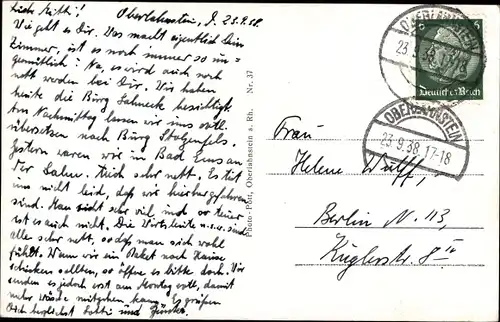 Oberlahnstein, d. 23.9.38.
Liebe Mutti!
Wie geht es Dir. Was macht eigentlich Dein
Zimmer, ist es noch immer so un-
gemütlich? Na, es wird auch noch
nett werden bei Dir. Wir haben
heute die Burg Lahneck besichtigt
Nachmittag lassen wir uns
übersetzen nach Burg Stolzenfels.
Gestern waren wir in Bad Ems an
der Lahn. Auch sehr nett. Es tut
uns nicht leid, daß wir hierher gefahren
sind. Man sieht sehr viel, und so teuer
ist es auch nicht. Die Wirtsleute u.s.w. sind
alle sehr nett, so daß man sich wohl
fühlt. Wenn wir ein Paket nach Hause
schicken sollten, so öffne es bitte doch. Wir
senden es jedoch erst am Montag voll, damit
mehr Wäsche mitgehen kann. Es grüßen
Dich herzlichst und Günter.
Photo-Pott, Oberlahnstein a. Rh. Nr. 37
OBERLAHNSTEIN
23.9.38
Deutsches Reich
6
OBERLAHNSTEIN
23.9.38.17-18
Frau
Helene Wulff,
Berlin N. 113,
Kuglerstr. 8 IV